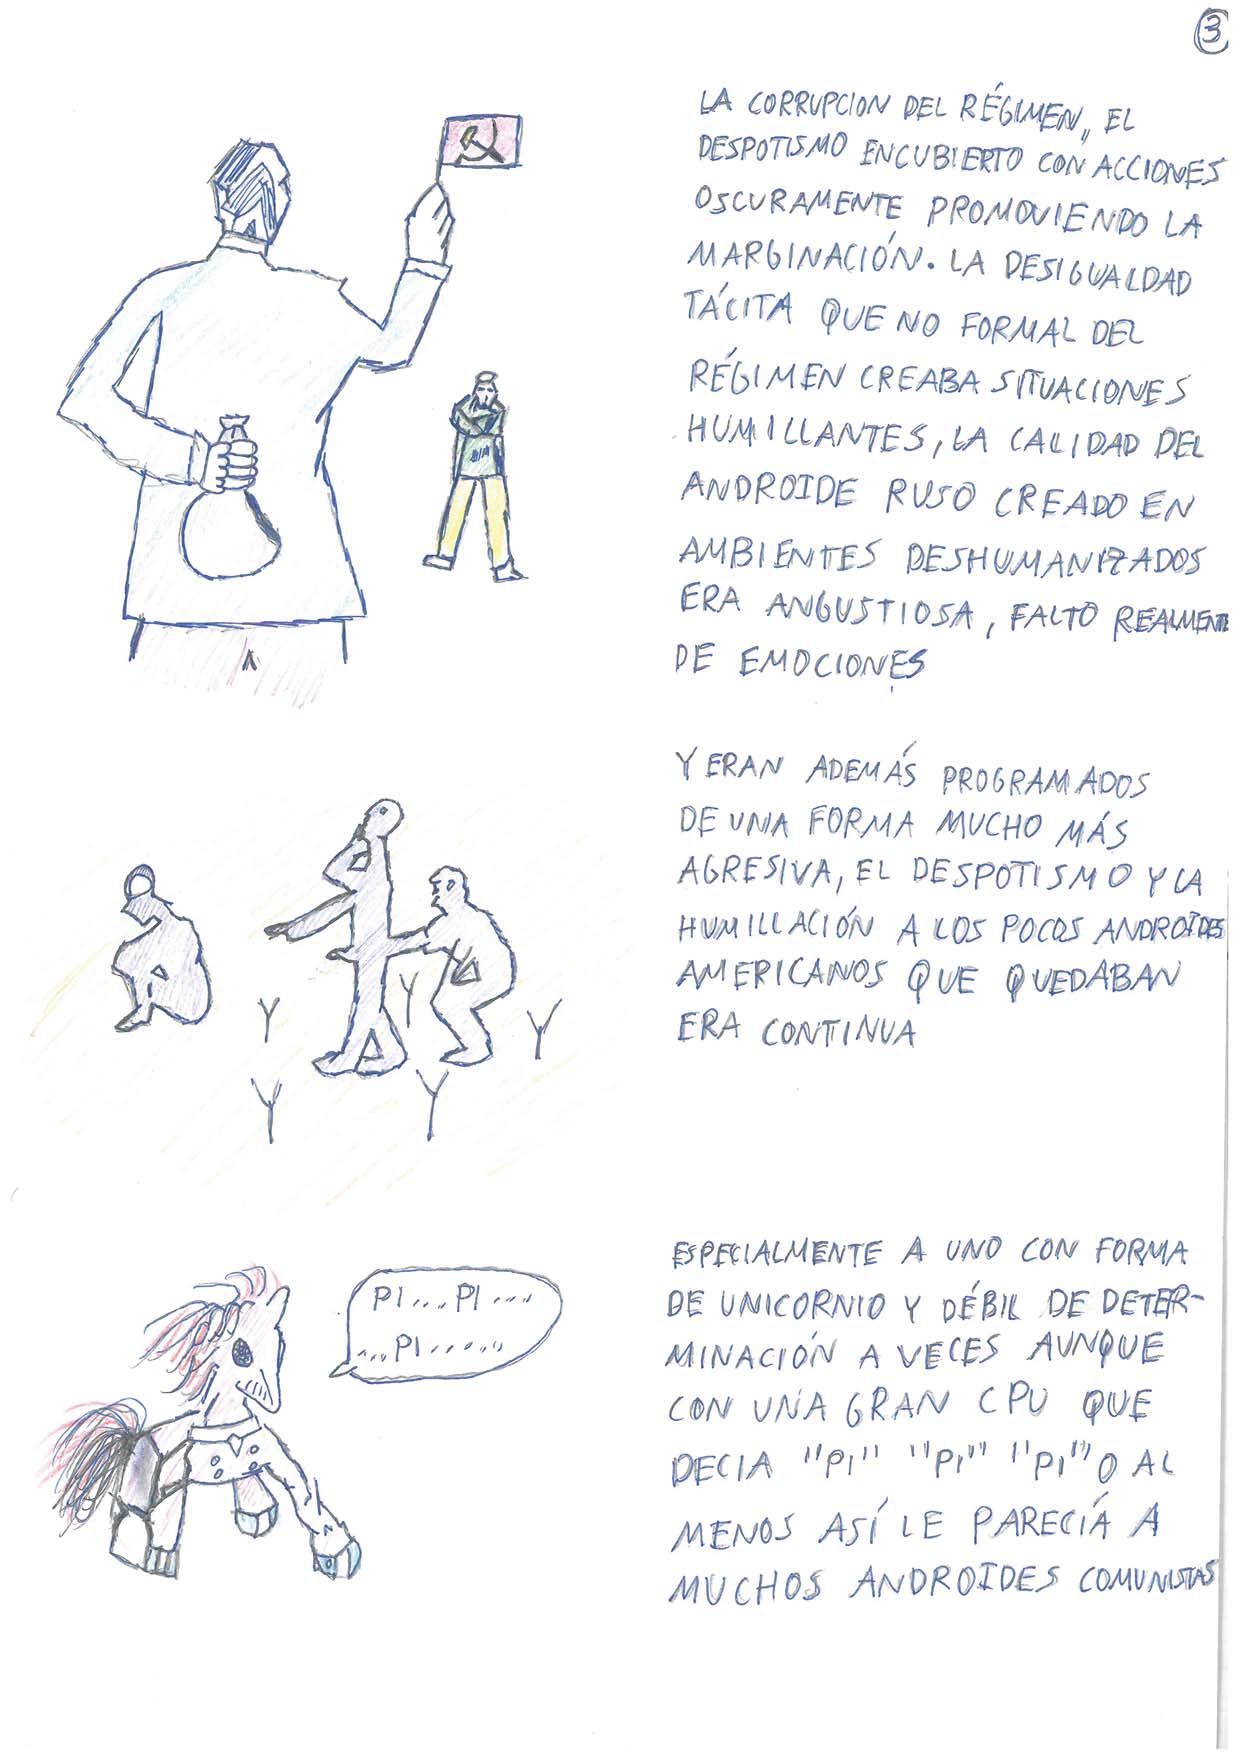 3
LA CORRUPCION DEL RÉGIMEN,, EL
DESPOTISMO ENCUBIERTO CON ACCIONES
OSCURAMENTE PROMOVIENDO LA
MARGINACIÓN. LA DESIGUALDAD
TÁCITA QUE NO FORMAL DEL
RÉGIMEN CREABA SITUACIONES
HUMILLANTES, LA CALIDAD DEL
ANDROIDE RUSO CREADO EN
AMBIENTES DESHUMANIZADOS
ERA ANGUSTIOSA, FALTO REALMENTE
DE EMOCIONES
Y ERAN ADEMÁS PROGRAMADOS
DE UNA FORMA MUCHO MÁS
AGRESIVA, EL DESPOTISMO Y LA
HUMILLACIÓN A LOS POCOS ANDROIDES
AMERICANOS QUE QUEDABAN
ERA CONTINUA
PI... PI ....
...PI......
ESPECIALMENTE A UNO CON FORMA
DE UNICORNIO Y DÉBIL DE DETER-
MINACIÓN A VECES AUNQUE
CON UNA GRAN CPU QUE
DECIA "PI" "PI" "PI" O AL
MENOS ASÍ LE PARECÍA A
MUCHOS ANDROIDES COMUNISTAS